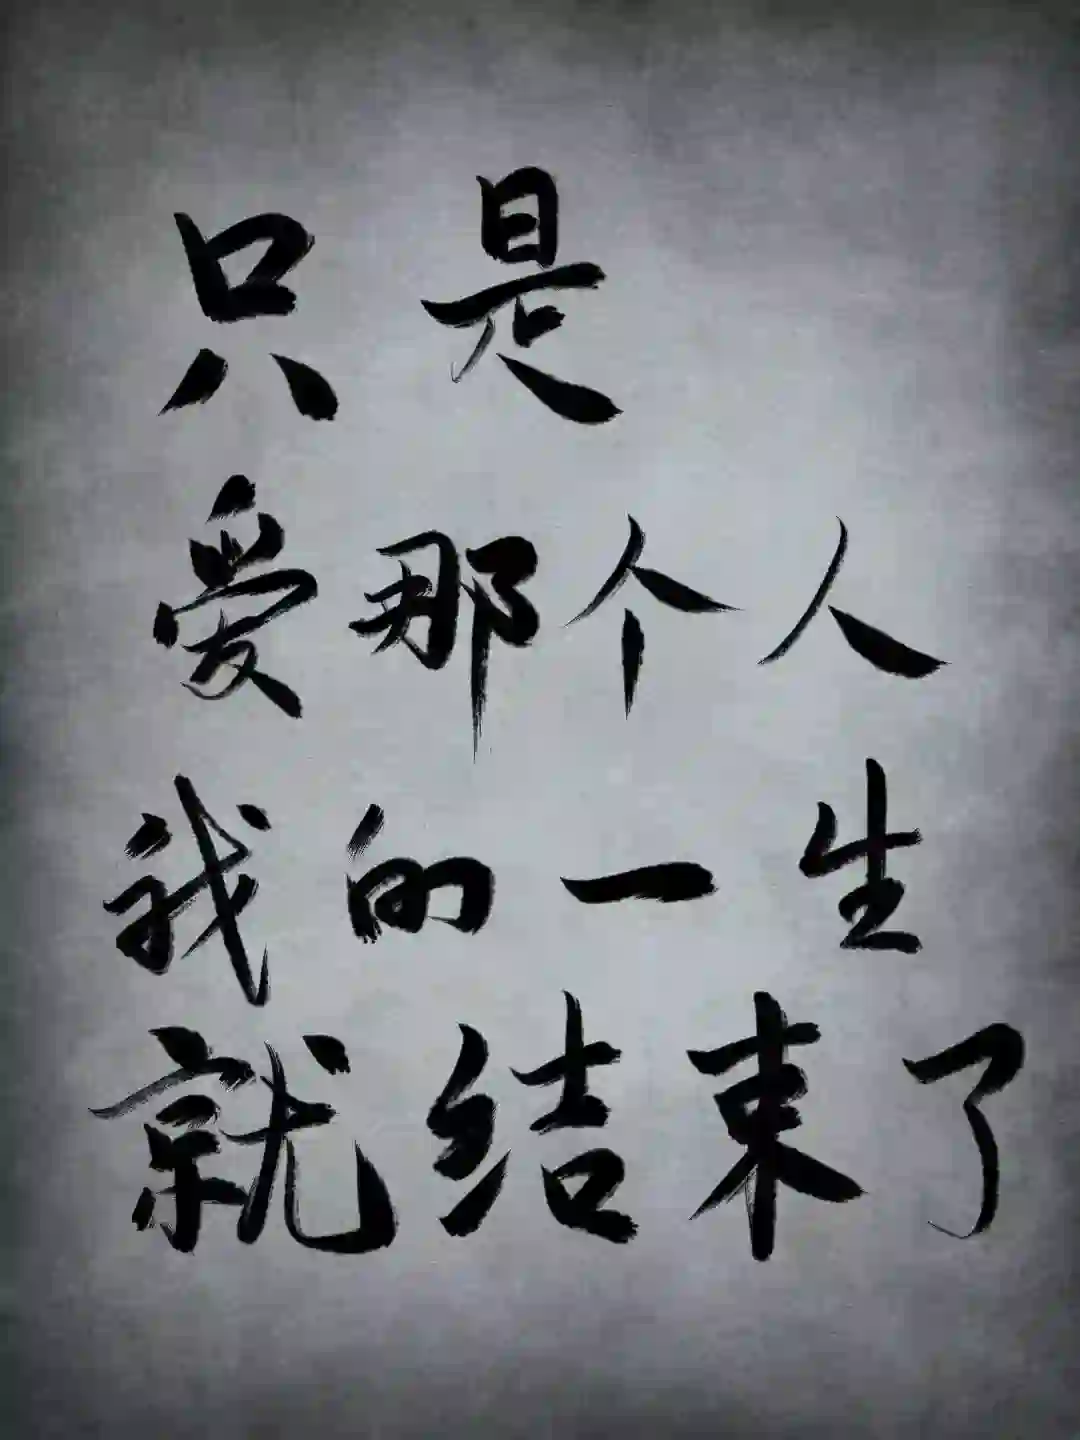 只是
爱那个人
我的一生
就结束了